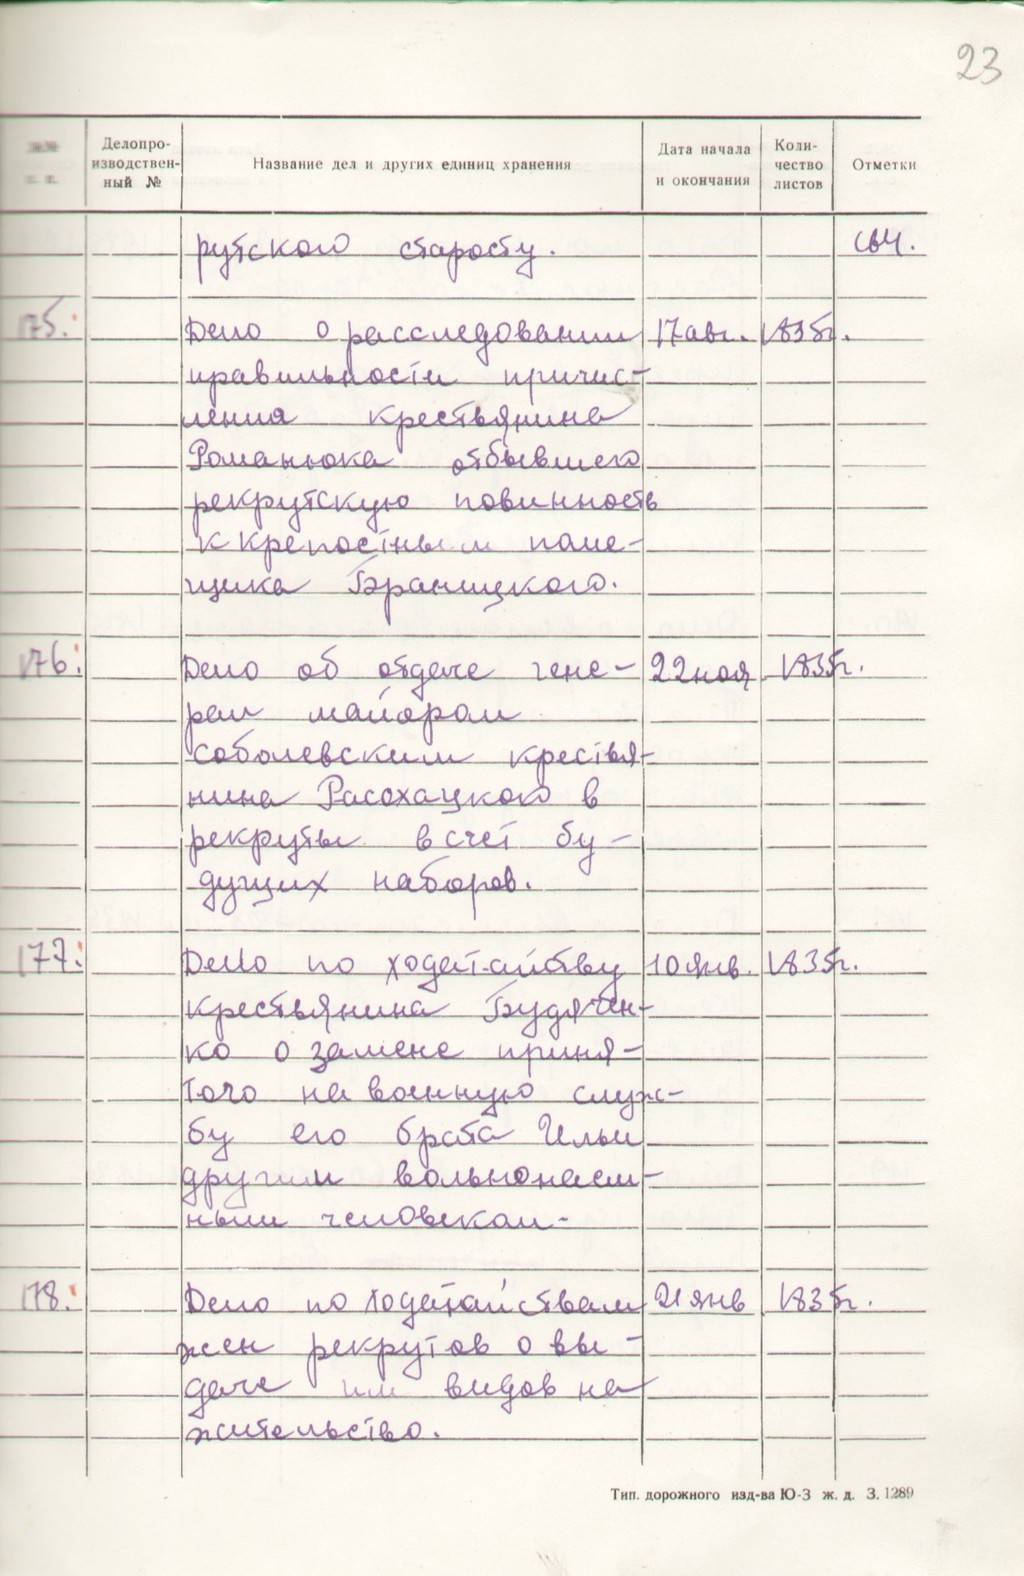 23
Делопро-
изводствен-
ный №
Название дел и других единиц хранения
Дата начала
и окончания
Коли-
чество
листов
Отметки
рутского старосту.
175. Дело о расследовании 17 авг. 1835г.
правильности причис-
ления крестьянина
Романюка отбывшего
рекрутскую повинность
к крепостным поме-
щика Браницкого.
176. Дело об отдаче гене- 22 ноя 1835г.
рал майором
Соболевским крестья-
нина Расохацкого в
рекруты в счет бу-
дущих наборов.
177. Дело по ходатайству 10 янв. 1835г.
крестьянина Будячен-
ко о замене приня-
того на военную служ-
бу его брата Ильи
другим вольнонаем-
ным человеком.
178. Дело по ходатайствам 21 янв 1835г.
жен рекрутов о вы-
даче им видов на
жительство.
Тип. дорожного изд-ва Ю-З ж. д. З. 1289